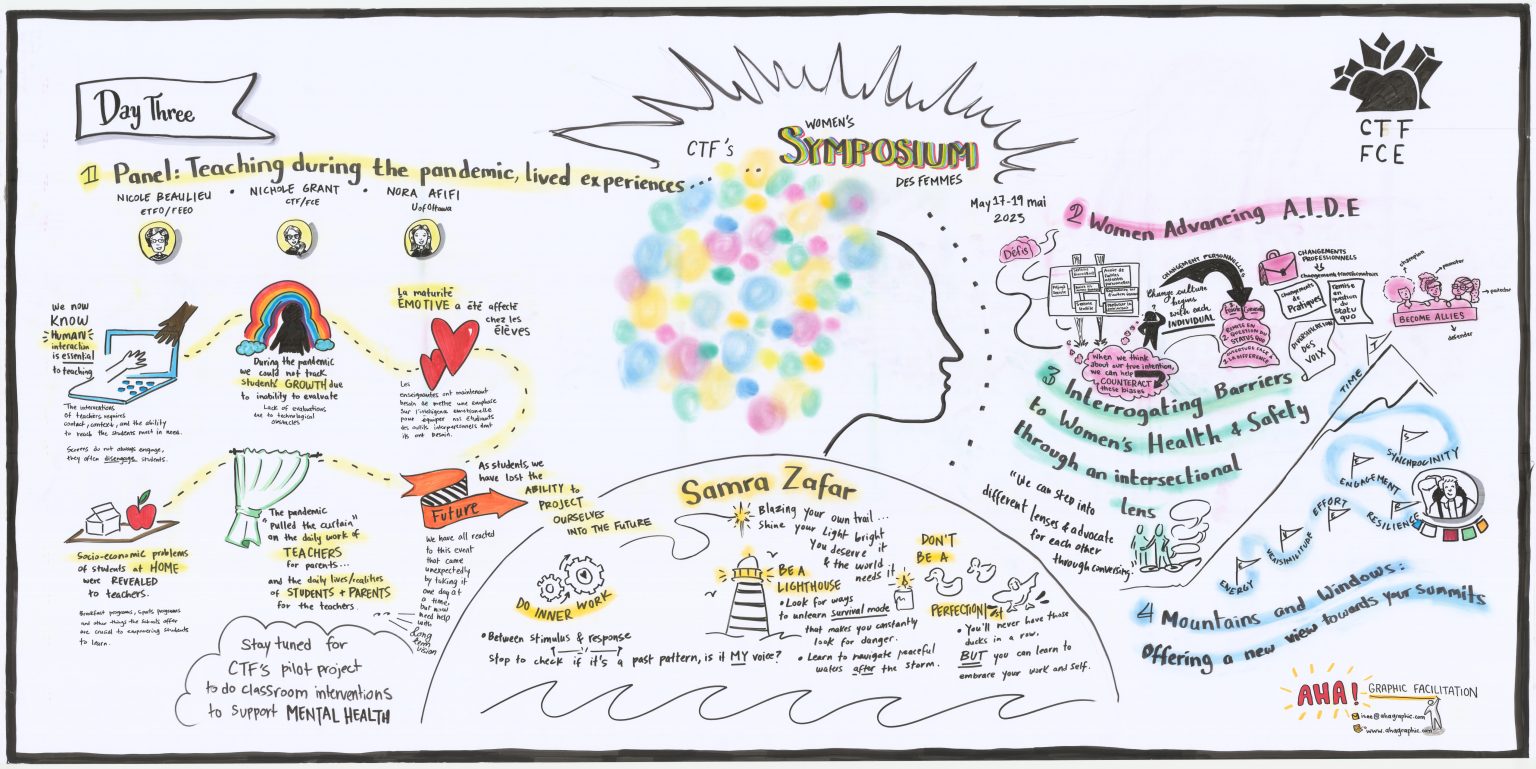 Day Three
CTF's
WOMEN'S
SYMPOSIUM
DES FEMMES
May 17-19 mai
2023
CTF
FCE
1 Panel: Teaching during the pandemic, lived experiences...
NICOLE BEAULIEU
ETFO/FEEO
• NICHOLE GRANT
CTF/FCE
• NORA AFIFI
UofOttawa
We now
KNOW
HUMAN
interaction
is essential
to teaching
The interventions
of teachers requires
contact, context, and the ability
to reach the students most in need.
Screens do not always engage,
they often disengage students.
During the pandemic
we could not track
students' GROWTH due
to inability to evaluate
Lack of evaluations
due to technological
obstacles
La maturité
ÉMOTIVE a été affecté
chez les
élèves
Les
enseignantes ont maintenant
besoin de mettre une emphase
sur l'intelligence émotionnelle
pour équiper nos étudiants
des outils interpersonnels dont
ils ont besoin.
Socio-economic problems
of students at HOME
were REVEALED
to teachers.
Breakfast programs, sports programs
and other things the schools offer
are crucial to empowering students
to learn.
The pandemic
"Pulled the curtain"
on the daily work of
TEACHERS
for parents...
and the daily lives/realities
of STUDENTS + PARENTS
for the teachers.
Future
As students, we
have lost the
ABILITY to
PROJECT
OURSELVES
INTO THE FUTURE
We have all reacted
to this event
that came
unexpectedly
by taking it
one day at
a time,
but now
need help
with
long
term
vision
Stay tuned for
CTF's pilot project
to do classroom interventions
to support MENTAL HEALTH
Samra Zafar
Blazing your own trail...
Shine your light bright
You deserve it
& the world
needs it
DO INNER WORK
• Between stimulus & response
Stop to check if it's a past pattern, is it MY voice?
BE A
LIGHTHOUSE
• Look for ways
to unlearn survival mode
that makes you constantly
look for danger.
• Learn to navigate peaceful
waters after the storm.
DON'T
BE A
PERFECTIONIST
• You'll never have those
ducks in a row.
BUT you can learn to
embrace your work and self.
2 Women Advancing A.I.D.E
Défis
CHANGEMENT PERSONNELLES
Change culture
begins
with each
INDIVIDUAL
When we think
about our true intention,
we can help
COUNTERACT
these biases
REMISE EN
QUESTION DU
STATUS QUO
OUVERTURE FACE À
LA DIFFÉRENCE
CHANGEMENTS
PROFESSIONNELS
changements transformation
changements
de
Pratiques
Remise
en
question
du
statu
quo
DIVERSIFICATION
DES
VOIX
champion
promoter
defender
BECOME ALLIES
3 Interrogating Barriers
to Women's Health & Safety
through an intersectional
lens
"We can step into
different lenses & advocate
for each other
through conversing.
TIME
SYNCHRONICITY
ENGAGEMENT
RESILIENCE
EFFORT
VERSIMILITUDE
ENERGY
4 Mountains and Windows:
Offering a new view towards your summits
AHA!
GRAPHIC FACILITATION
www.ahagraphic.com